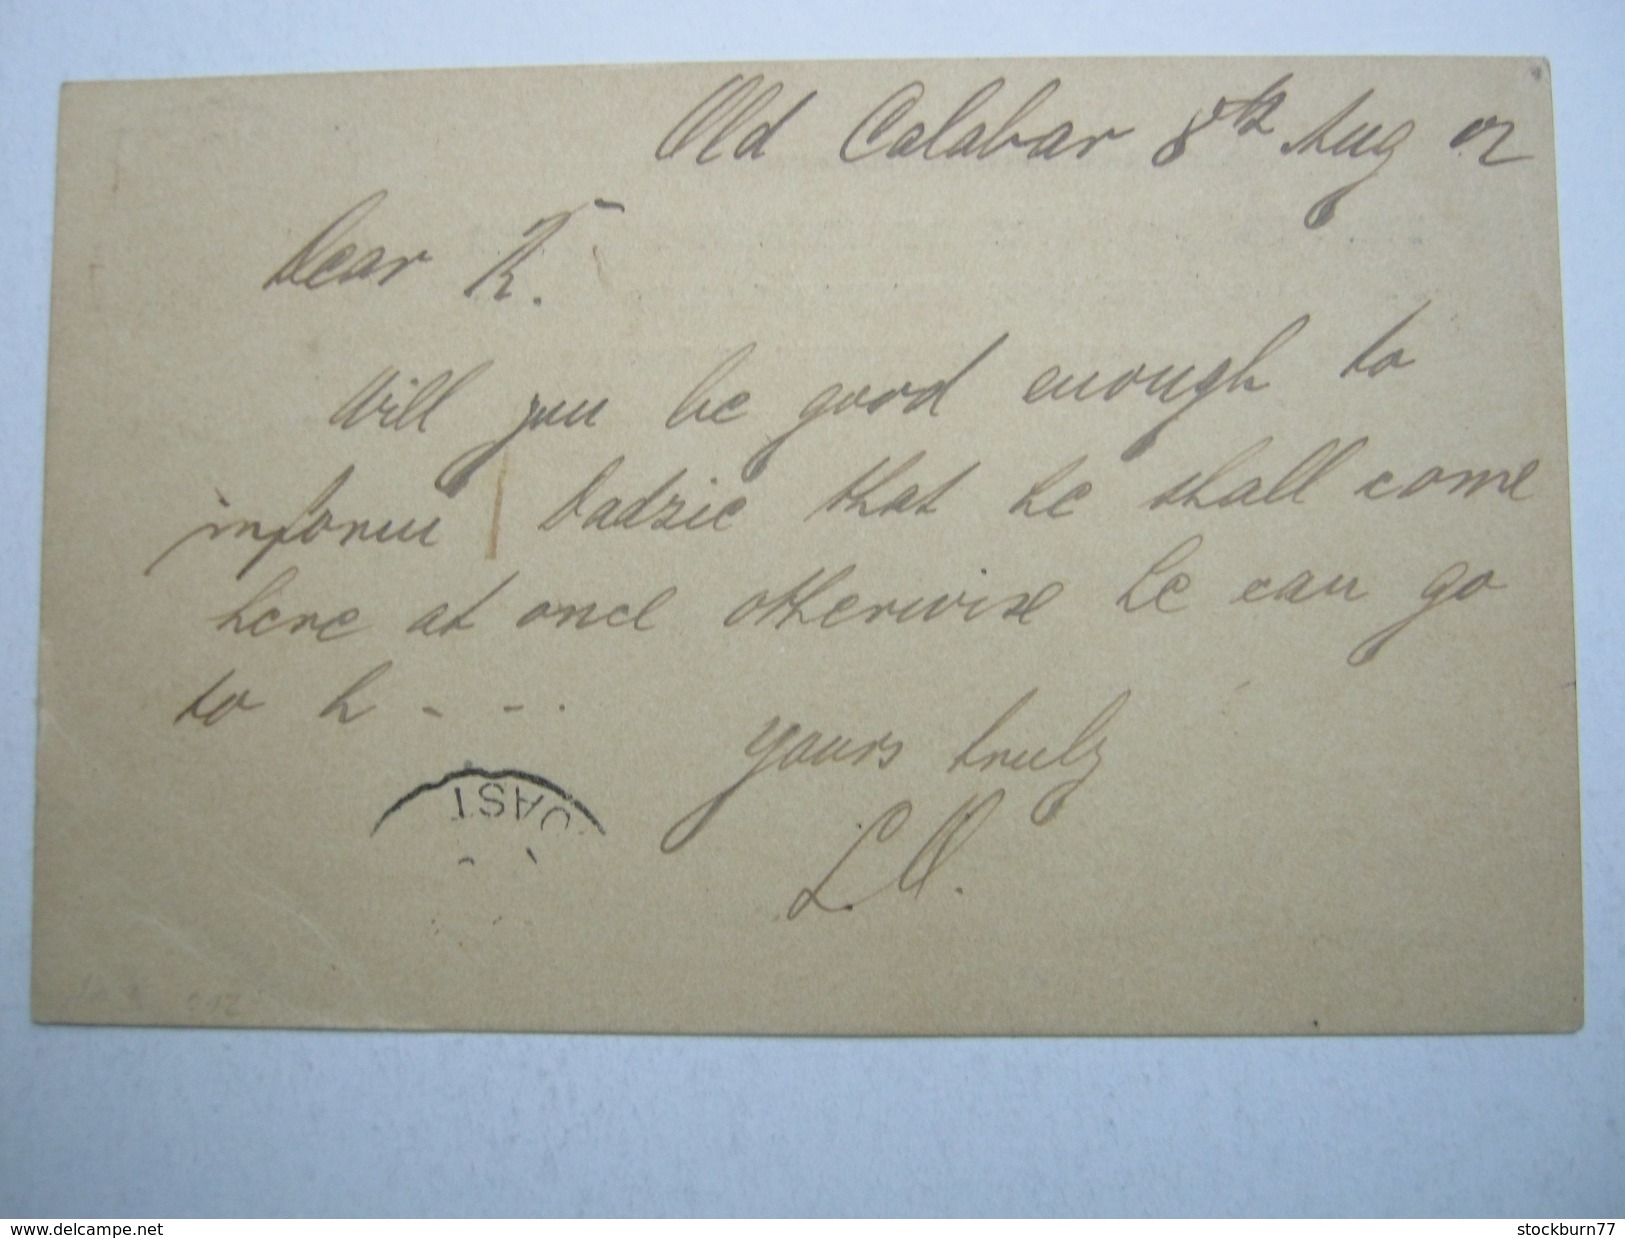 Old Calabar 8th Aug 02
Dear K.
Will you be good enough to
inform Dadzie that he shall come
here at once otherwise he can go
to h - - .
Yours truly
OAST
www.delcampe.net
stockburn77